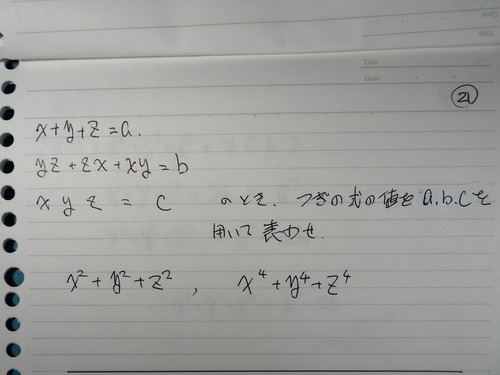 Title
Date
21
x+y+z=a.
yz+zx+xy=b
x y z = c のとき. つぎの式の値をa.b.cを
用いて表わせ.
x²+y²+z² , x⁴+y⁴+z⁴